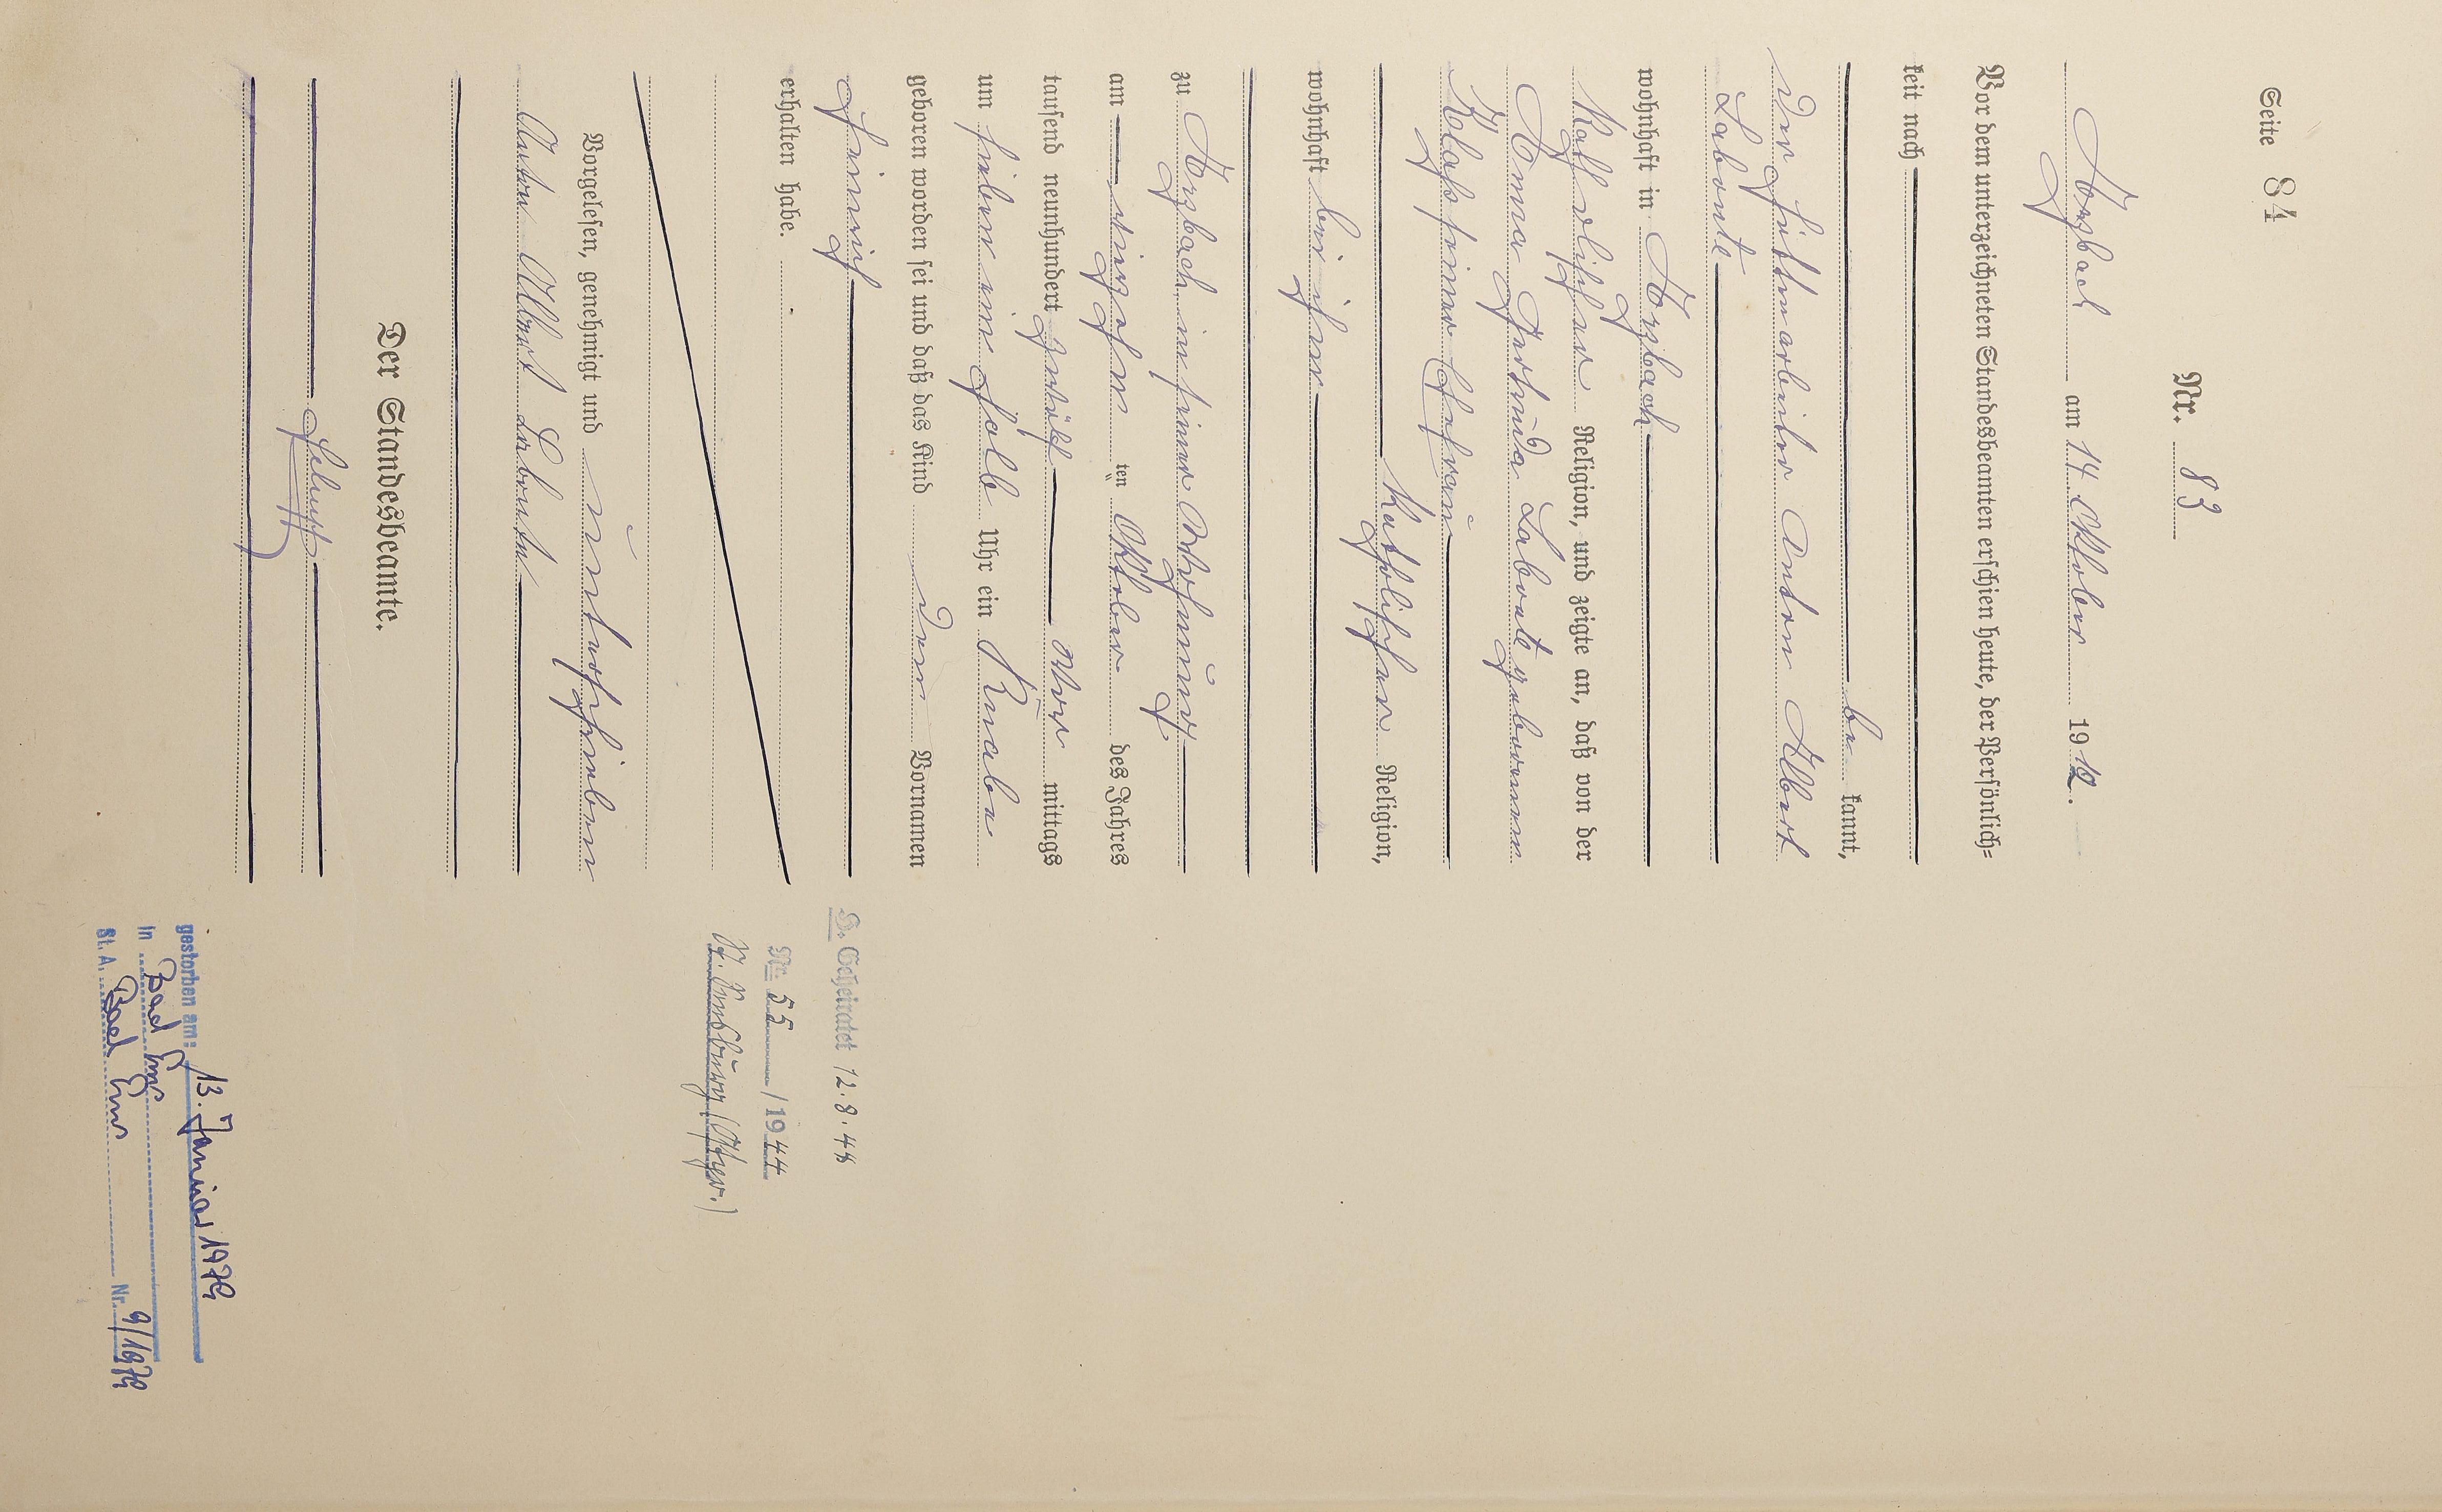 Seite 84
Nr. 83
Arzbach am 14 Oktober 1912.
Vor dem unterzeichneten Standesbeamten erschien heute, der Persönlich=
keit nach
be kannt,
der Hüttenarbeiter Anton Albert
Labonte
wohnhaft in Arzbach
katholischer Religion, und zeigte an, daß von der
Anna Gertruda Labonte geborenen
seiner Ehefrau
katholischer Religion,
wohnhaft bei ihm
zu Arzbach, in seiner Wohnung
am vierzehn ten Oktober des Jahres
tausend neunhundert zwölf Vor mittags
um sieben ein halb Uhr ein Knabe
geboren worden sei und daß das Kind den Vornamen
Heinrich
erhalten habe.
Vorgelesen, genehmigt und unterschrieben
Anton Albert Labonte
Der Standesbeamte.
G. Geheiratet 12.8.44
Nr. 55 /1944
gestorben am: 13. Januar 1979
in Bad Ems
St. A. Bad Ems Nr. 9/1979